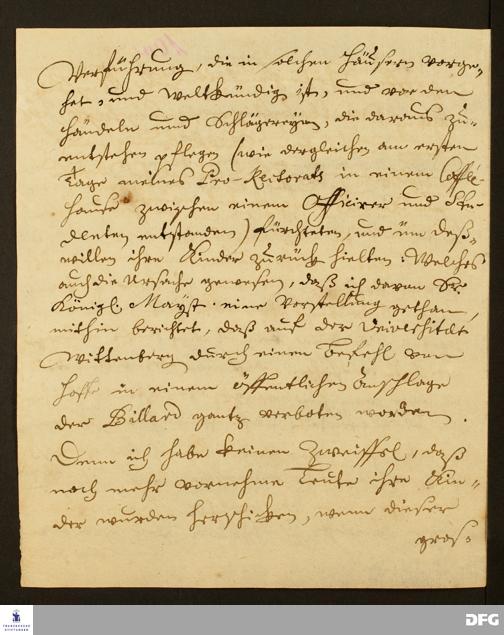 Verführung, die in solchen Häusern vorge-
het, und Weltkündig ist, und vor den
Händeln und Schlägereyen, die daraus zu
entstehen pflegen (wie dergleichen am ersten
Tage meines Pro-Rectorats in einem Caffé-
hause zwischen einem Officirer und Stu-
denten entstanden) fürchteten, und üm deß-
willen ihre Kinder zurück hielten: Welches
auch die Ursache gewesen, daß ich davon Sr.
Königl. Mayst. eine Vorstellung gethan,
mithin berichtet, daß auf der Universität
Wittenberg durch einen Befehl vom
Hoffe in einem öffentlichen Anschlage
der Billard gantz verboten worden.
Denn ich habe keinen Zweiffel, daß
noch mehr vornehme Leute ihre Kin-
der wurden herschicken, wenn dieser
gros-
FRANCKESCHE
STIFTUNGEN
DFG